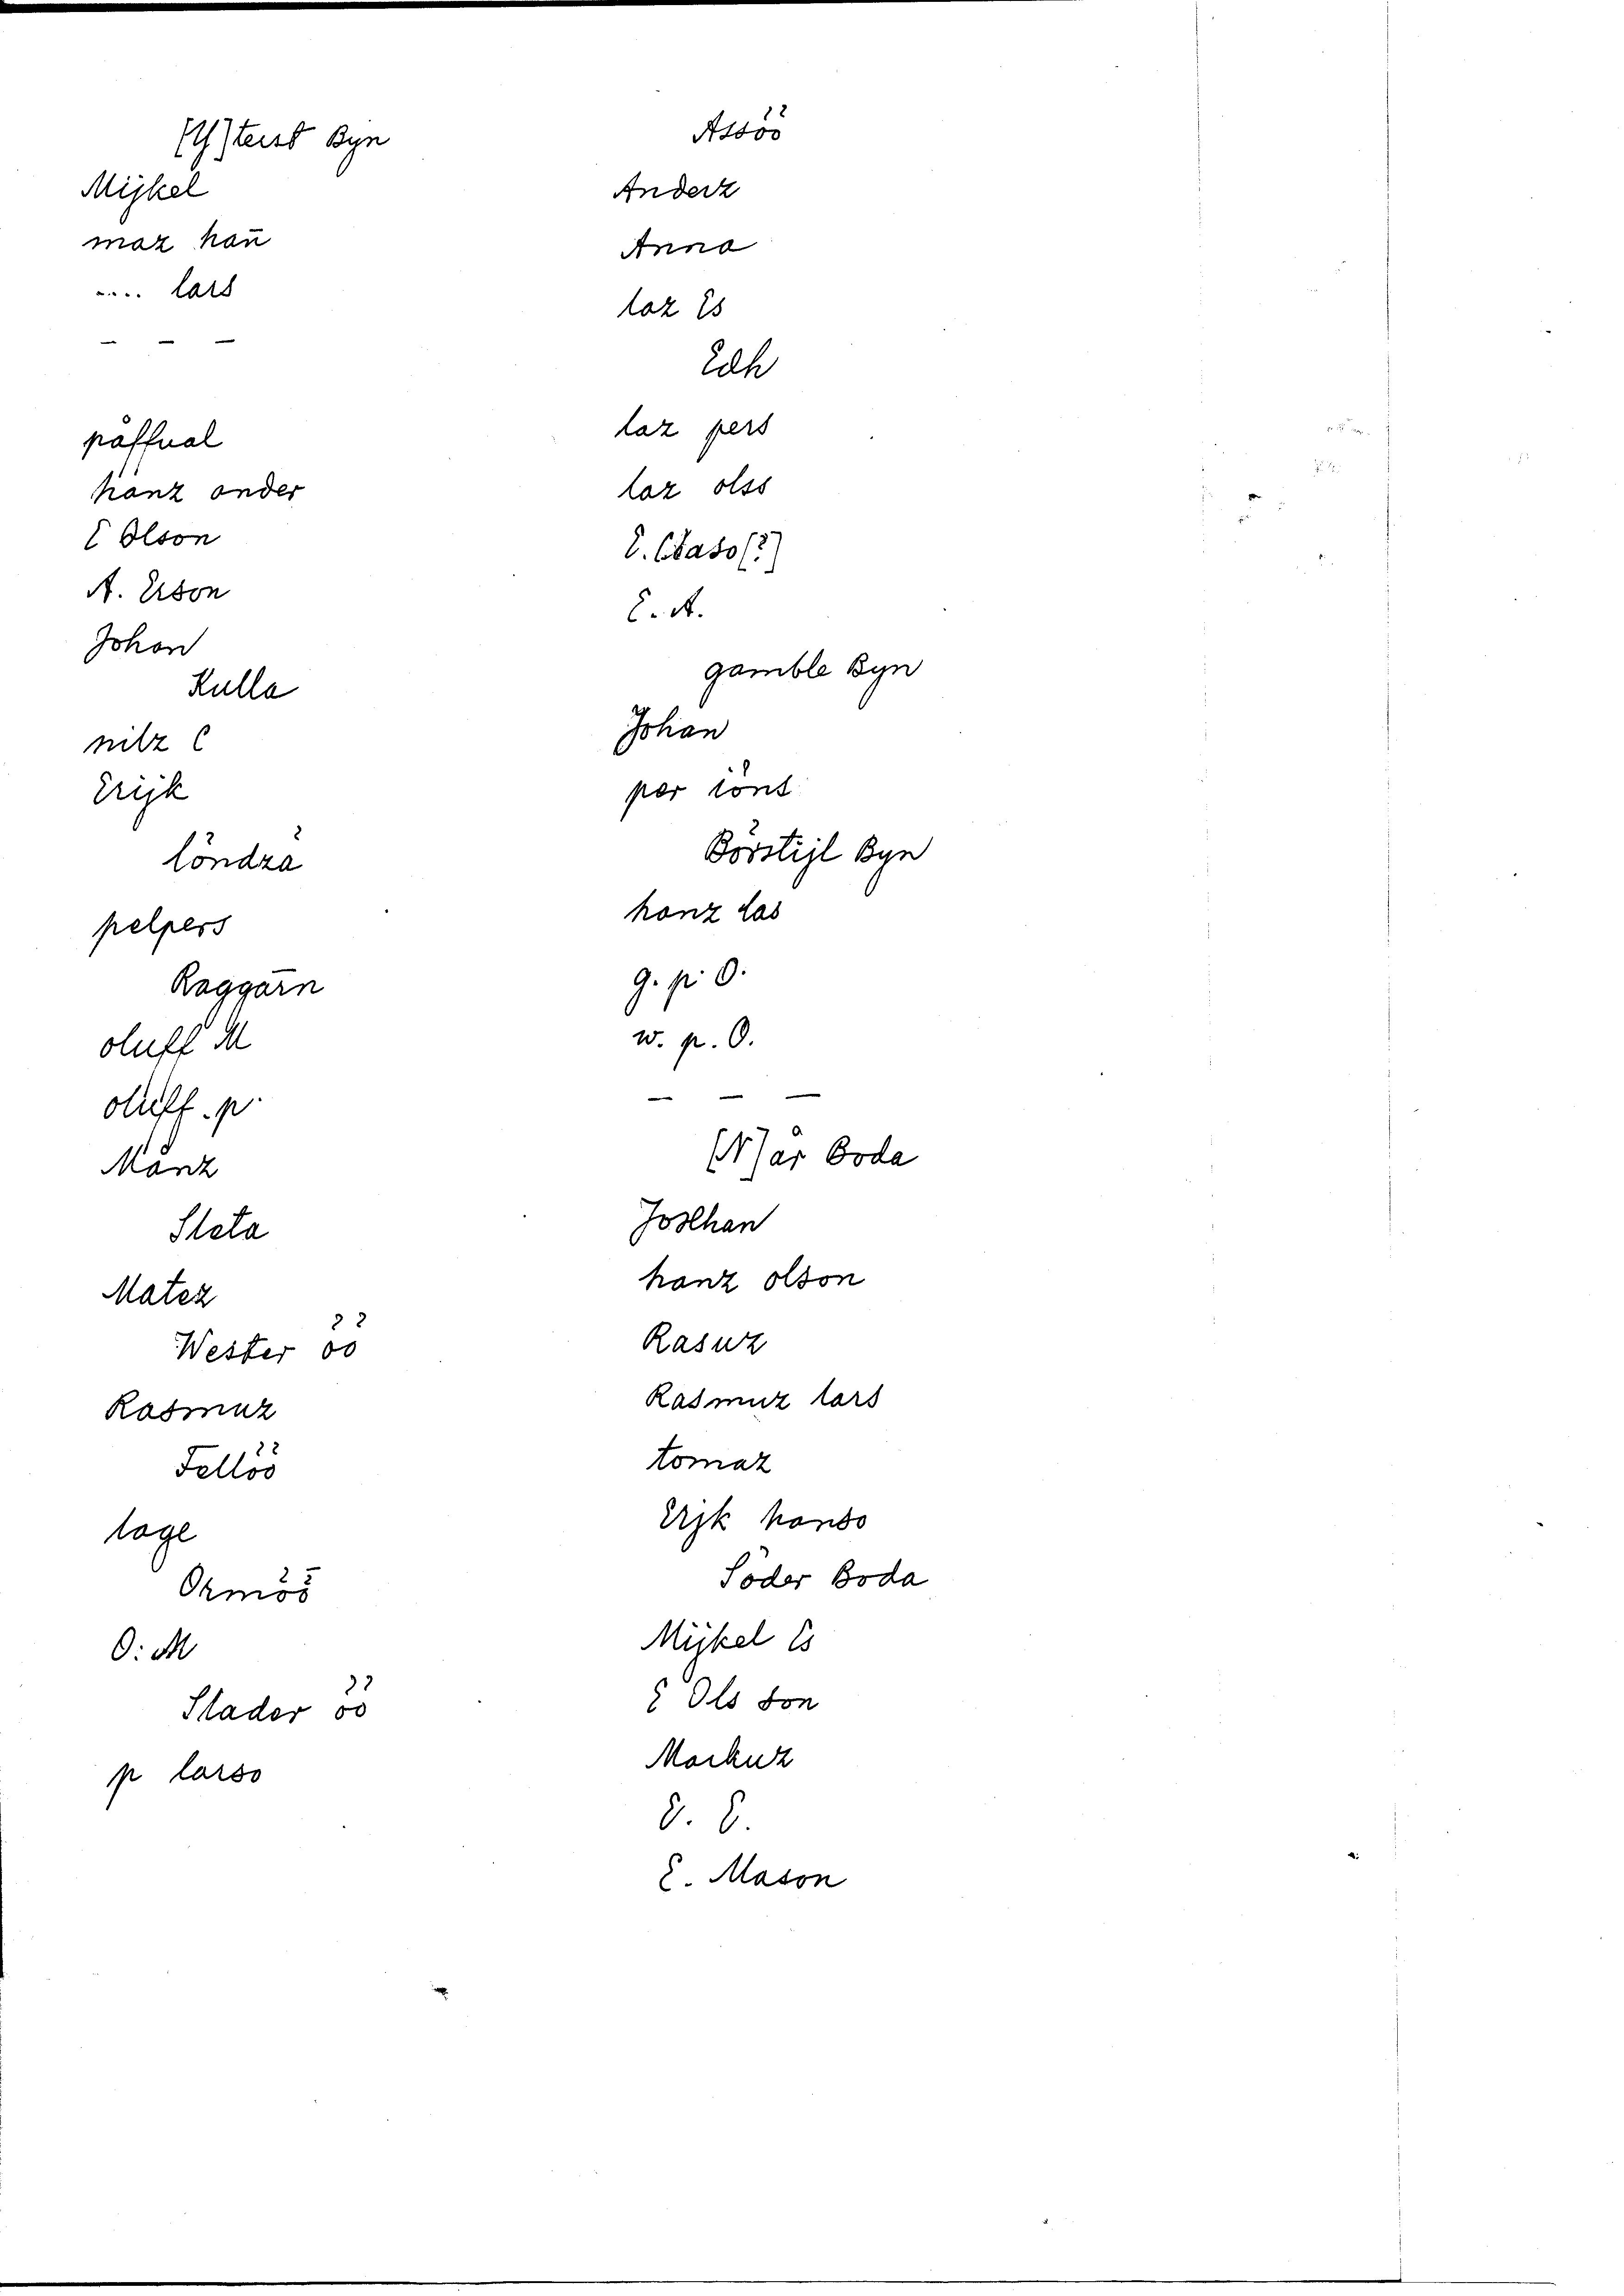 (Y)terst Byn
Mijkel
maz han̄
.... lars
— — —
påffual
hanz ander
E Olson
A. Erson
Johan
Kulla
nilz E
Erijk
löndza
pelpers
Raggarn
oluff M
oluff. p.
Månz
Sleta
Matez
Wester öö
Rasmuz
Fellöö
lage
Ormöö
O: M
Slader öö
p larso
Assöö
Anderz
Anna
laz Es
Edh
laz pers
laz olss
E. Claso(?)
E. A.
gamble Byn
Johan
per iöns
Börstijl Byn
hanz las
g. p. O.
w. p. O.
— — —
(N)år Boda
Joslhan
hanz olson
Rasuz
Rasmuz lars
tomaz
Erjk hanso
Söder Boda
Mijkel Es
E Ols son
Markuz
E. E.
E. Mason